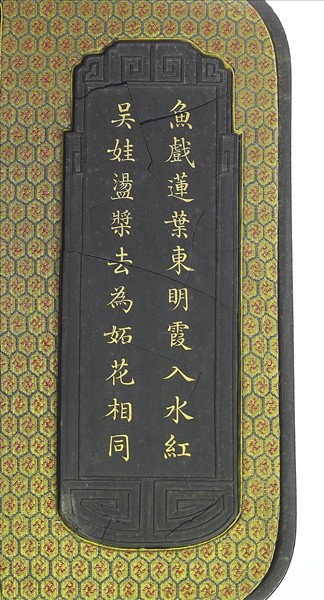 魚戲蓮葉東明霞入水紅
吴娃盪槳去為妬花相同